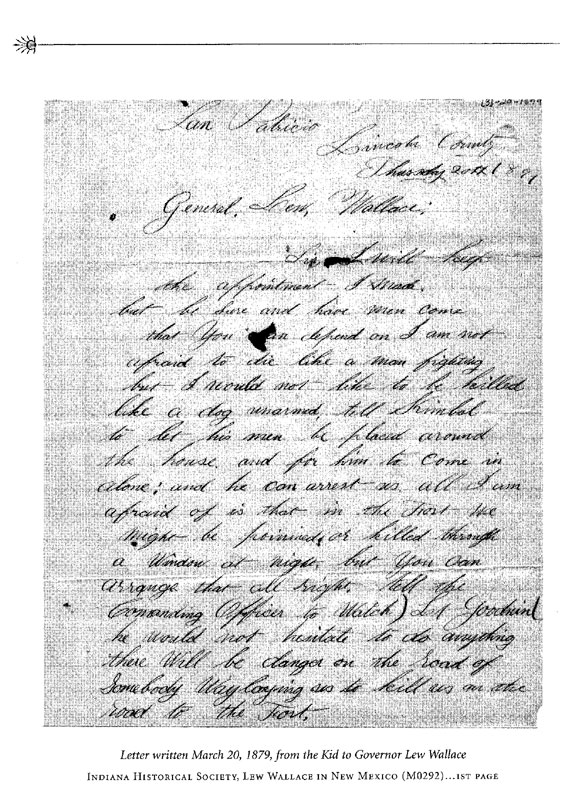 (3)-20-1879
San Patricio
Lincoln County
Thursday 20th 1879
General. Lew. Wallace;
Sir I will keep
the appointment I made.
but be Sure and have men come
that You can depend on I am not
afraid to die like a man fighting
but I would not like to be killed
like a dog unarmed. tell Kimbal
to let his men be placed around
the house. and for him to Come in
alone; and he can arrest us. all I am
afraid of is that in the Fort We
might be poisined, or killed through
a Window at night. but You Can
arrange that all right. tell the
Commanding Officer to Watch) Let Goodwin(
he would not hesitate to do anything
there Will be danger on the road of
Somebody Waylaying us to kill us on the
road to the Fort.
Letter written March 20, 1879, from the Kid to Governor Lew Wallace
Indiana Historical Society, Lew Wallace in New Mexico (M0292)...1st page